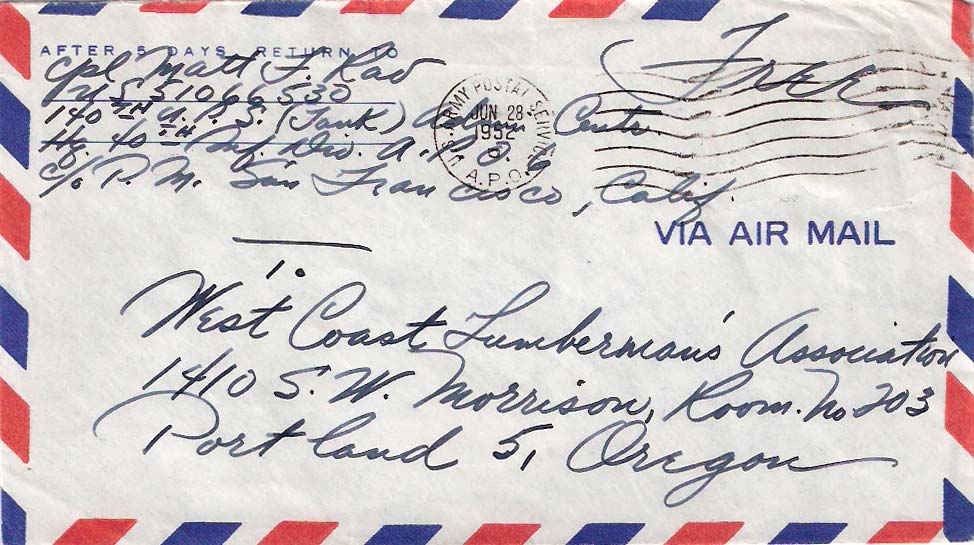 AFTER 5 DAYS, RETURN TO
Cpl Matt J. Rad
U S 51066530
140TH A. P. S. (Tank) Cent.
Hq. 40TH Inf. Div. A.P.O. 6
c/o P. M. San Francisco, Calif.
Free
U.S. ARMY POSTAL SERVICE
JUN 28
1952
A.P.O.
VIA AIR MAIL
To
West Coast Lumberman's Association
1410 S.W. Morrison, Room. No 203
Portland 5, Oregon